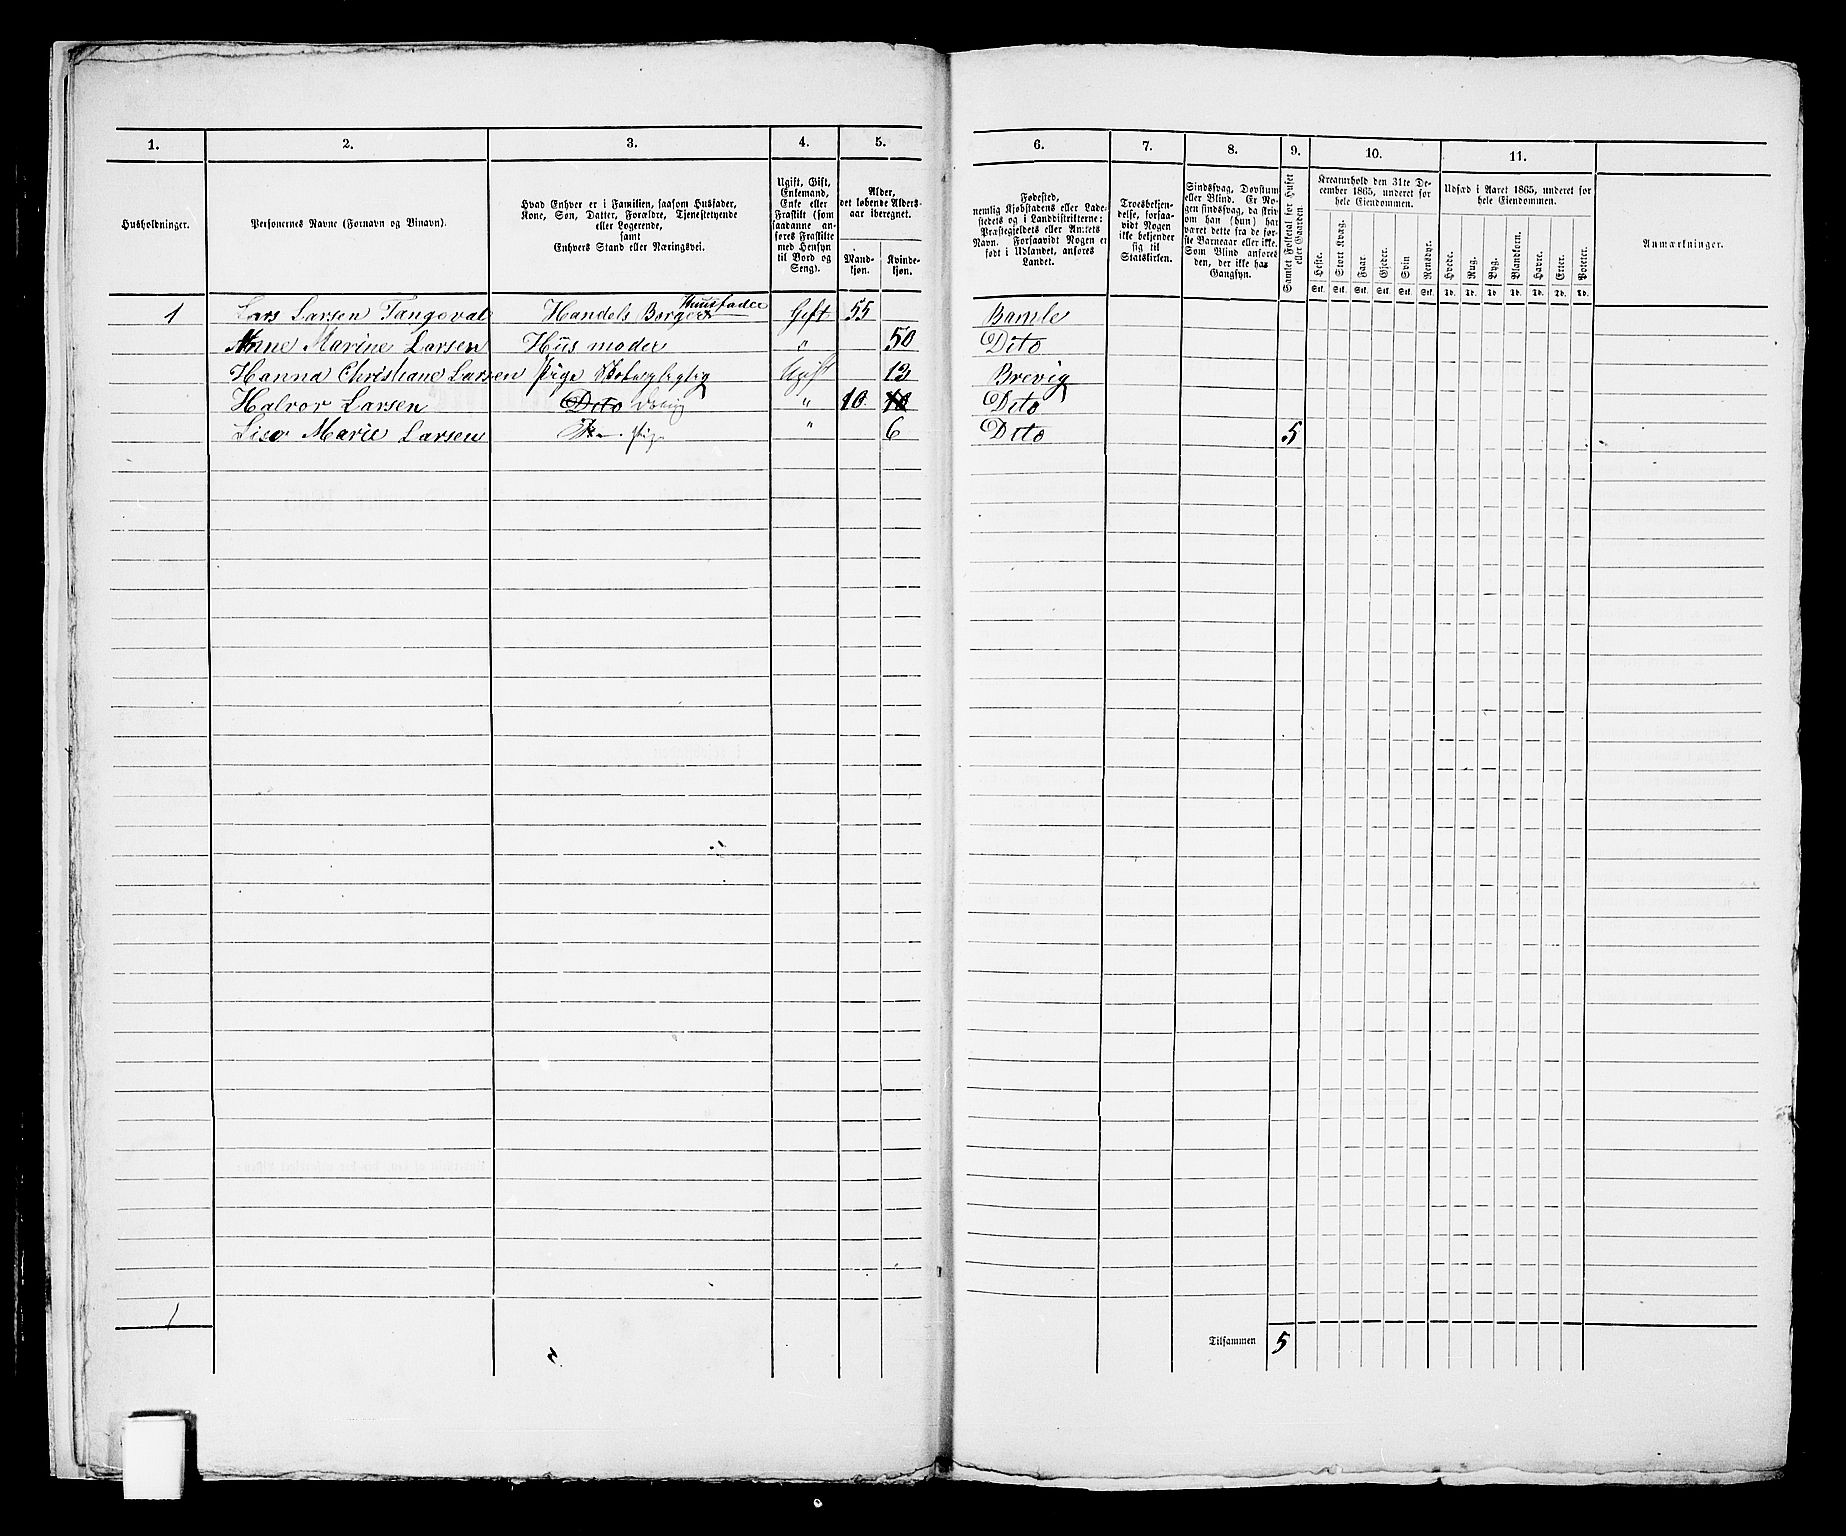 1. 2. 3. 4. 5. 6. 7. 8. 9. 10. 11.
Husholdninger.
Personernes Navne (Fornavn og Binavn).
Hvad Enhver er i Familien, saasom Husfader,
Kone, Søn, Datter, Forældre, Tjenestetyende
eller Logerende,
samt
Enhvers Stand eller Næringsvei.
Ugift, Gift,
Enkemand,
Enke eller
Fraskilt (som
saadanne an-
føres Fraskilte
med Hensyn
til Bord og
Seng).
Alder,
det løbende Alders-
aar iberegnet.
Mand-
kjøn.
Kvinde-
kjøn.
Fødested,
nemlig Kjøbstadens eller Lade-
stedets og i Landdistrikterne:
Præstegjeldets eller Amtets
Navn. Forsaavidt Nogen er
født i Udlandet, anføres
Landet.
Troesbekjen-
delse, forsaa-
vidt Nogen
ikke bekjender
sig til
Statskirken.
Sindssvag, Døvstum
eller Blind. Er No-
gen sindssvag, da skriv
om han (hun) har
været dette fra de før-
ste Barneaar eller ikke.
Som Blind anføres
den, der ikke har
Gangsyn.
Samlet Folketal for Huset
eller Gaarden.
Kreaturhold den 31te De-
cember 1865, underet for
hele Eiendommen.
Heste. Stort Kvæg. Faar. Gjeder. Svin Rensdyr.
Stk. Stk. Stk. Stk. Stk. Stk.
Udsæd i Aaret 1865, underet for
hele Eiendommen.
Hvede. Rug. Byg. Blandkorn. Havre. Erter. Poteter.
Td. Td. Td. Td. Td. Td. Td.
Anmærkninger.
1 Lars Larsen Tangeval Handels Borger Huusfader Gift 55 Bamle
Anne Marine Larsen Hüs moder " 50 Dito
Hanna Christiane Larsen Pige Ugift 13 Brevig
Halvor Larsen Dito " 10 10 Dito
Lise Marie Larsen Pige " 6 Dito 5
1
Tilsammen 5